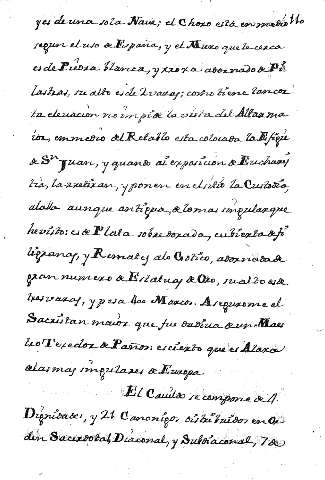 yes de una sola Nave; el Choro está en medio 110
segun el uso de España, y el Muro que le cerca
es de Piedra blanca, y roxa adornado de Pi
lastras, su alto es de 2 varas; como tiene tan cor
ta elevacion no impide la vista del Altar ma
ior, en medio del Retablo esta colocada la Efigie
de Sn Juan, y quando ai exposicion de Eucharis
tia, la retiran, y ponen en el sitio la Custodia,
alaja aunque antigua, de lo mas singular que
he visto: es de Plata sobredorada, cubierta de fi
ligranas, y Remates a lo Gotico, adornada de
gran numero de Estatuas de Oro, su alto es de
tres varas, y pesa Marcos. Asegurome el
Sacristan maior que fue dadiva de un Maes
tro Texedor de Paños: es cierto que es Alaxa
de las mas singulares de Europa.
El Cavildo se compone de 4
Dignidades, y 24 Canonigos distribuidos en Or
den Sacerdotal, Diaconal, y Subdiaconal, 7 de